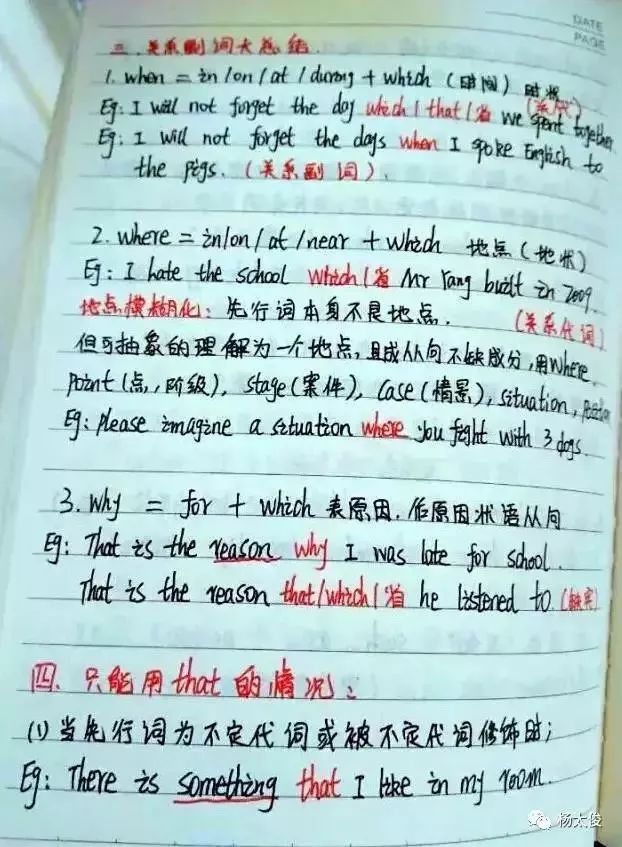 DATE
PAGE
三、关系副词大总结.
1. when = in / on / at / during + which (时间) 时状
Eg: I will not forget the day which / that / 省 we spent together (关代)
Eg: I will not forget the days when I spoke English to
the pigs. (关系副词).
2. where = in/on / at / near + which 地点 (地状)
Eg: I hate the school which / 省 Mr Yang built in 2009.
地点模糊化: 先行词本身不是地点. (关系代词)
但可抽象的理解为一个地点,且成从句不缺成分,用where.
point (点,阶级), stage (案件), case (情景), situation,
Eg: please imagine a situation where you fight with 3 dogs.
3. why = for + which 表原因. 作原因状语从句
Eg: That is the reason why I was late for school.
That is the reason that/which/省 he listened to. (缺宾)
四. 只能用that的情况:
(1) 当先行词为不定代词或被不定代词修饰时;
Eg: There is something that I like in my room.
杨太俊